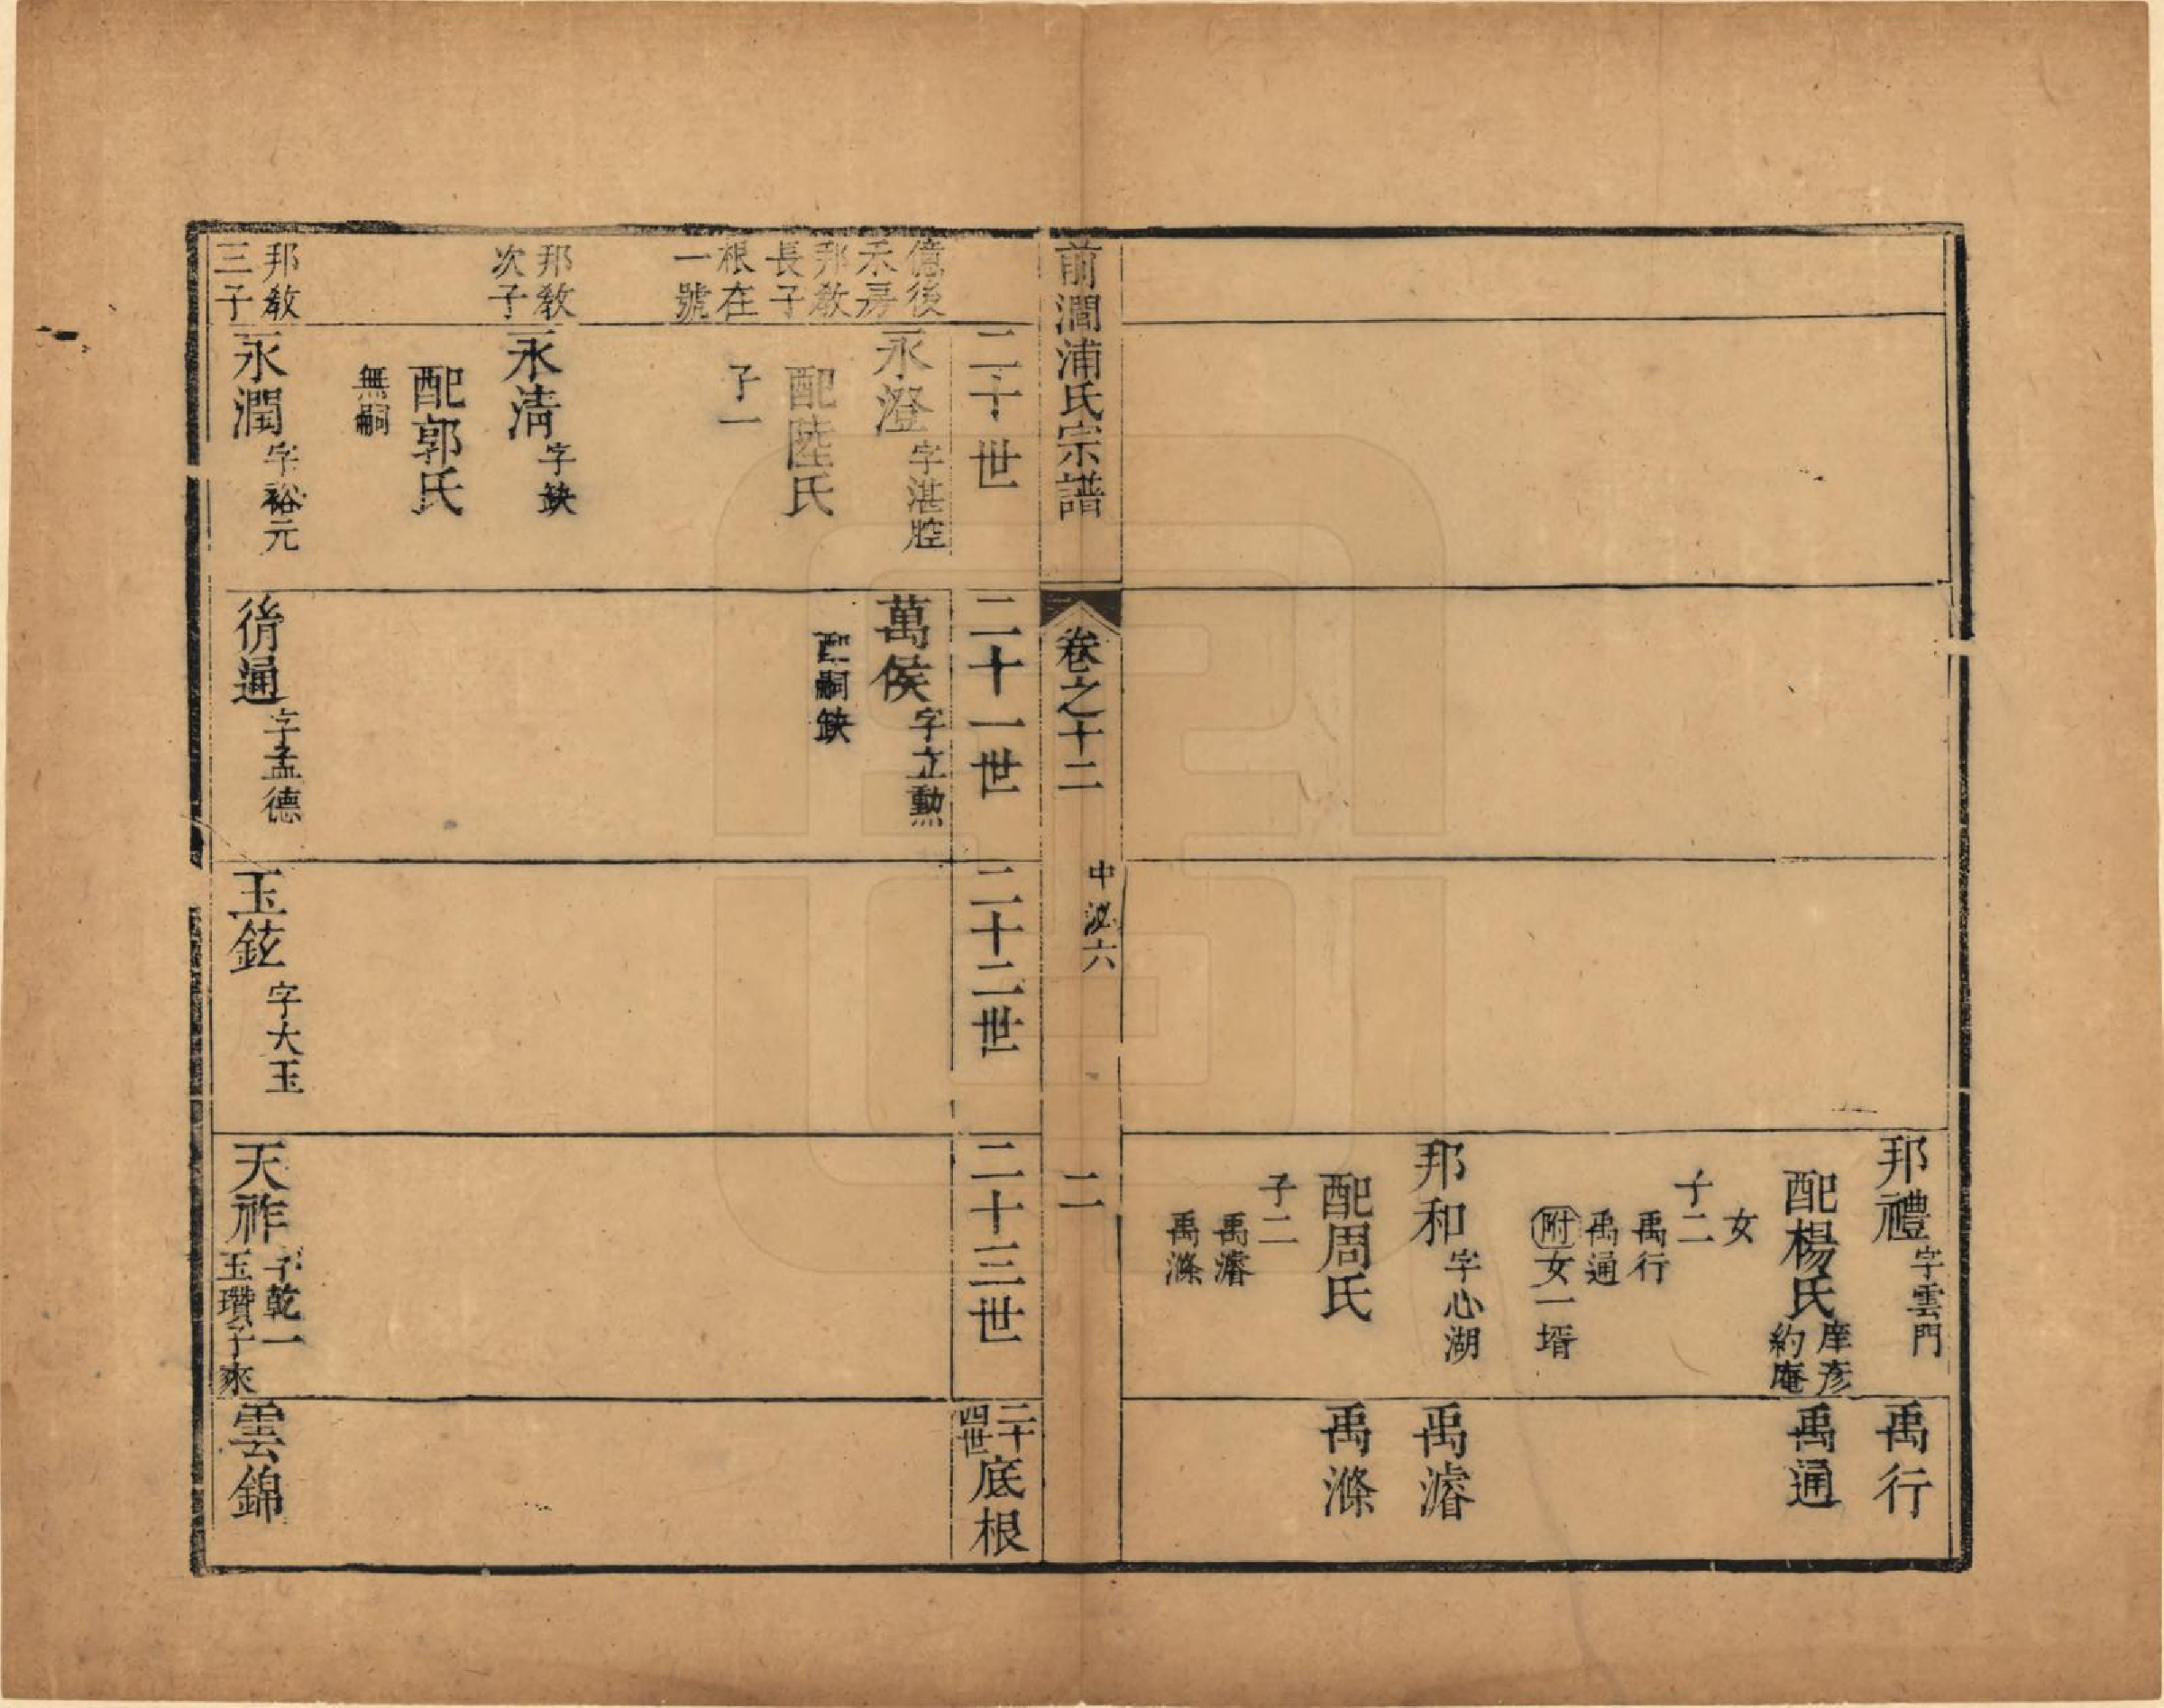 邦禮字雲門
配楊氏庠彥約庵
女
子二
禹行
禹通
附女一壻
邦和字心湖
配周氏
子二
禹濬
禹滌
禹行
禹通
禹濬
禹滌
前澗浦氏宗譜
卷之十二
中泌六
二
二十世
二十一世
二十二世
二十三世
二十四世底根
億後
禾房
邦教
長子
根在
一號
永澄字湛腔
配陸氏
子一
萬侯字立勲
配嗣缺
邦教
次子
永淸字缺
配郭氏
無嗣
邦教
三子
永潤字裕元
通字孟德
玉鉉字大玉
天祚字乾一
玉瓚子來
雲錦